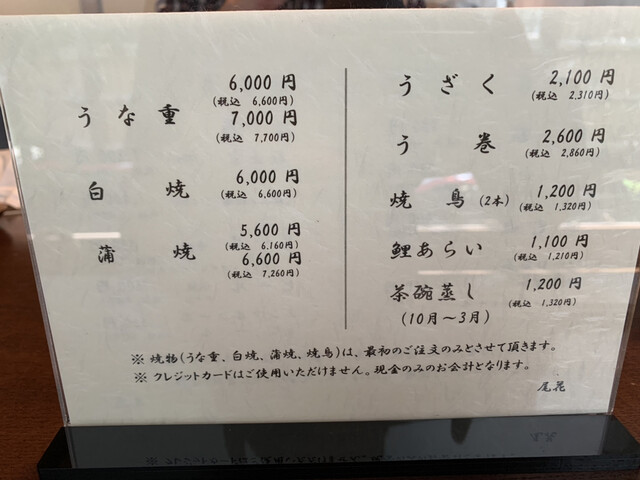 うな重
6,000 円
(税込 6,600円)
7,000 円
(税込 7,700円)
白焼
6,000 円
(税込 6,600円)
蒲焼
5,600 円
(税込 6,160円)
6,600 円
(税込 7,260円)
うざく 2,100 円
(税込 2,310円)
う巻 2,600 円
(税込 2,860円)
焼鳥(2本) 1,200 円
(税込 1,320円)
鯉あらい 1,100 円
(税込 1,210円)
茶碗蒸し 1,200 円
(税込 1,320円)
(10月～3月)
※ 焼物(うな重、白焼、蒲焼、焼鳥)は、最初のご注文のみとさせて頂きます。
※ クレジットカードはご使用いただけません。現金のみのお会計となります。
尾花